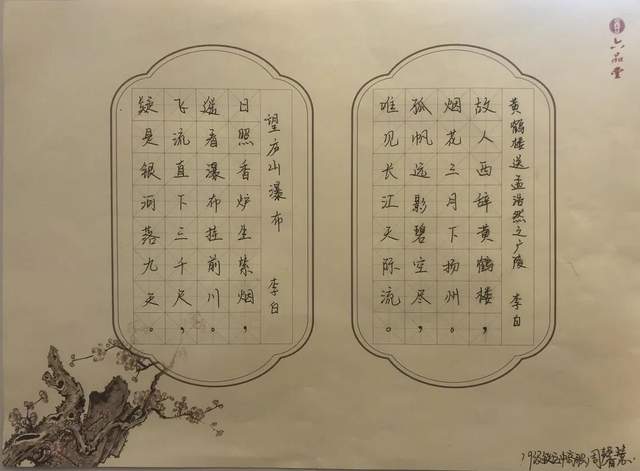 六品堂
黄鹤楼送孟浩然之广陵 李白
故人西辞黄鹤楼，
烟花三月下扬州。
孤帆远影碧空尽，
唯见长江天际流。
望庐山瀑布 李白
日照香炉生紫烟，
遥看瀑布挂前川。
飞流直下三千尺，
疑是银河落九天。